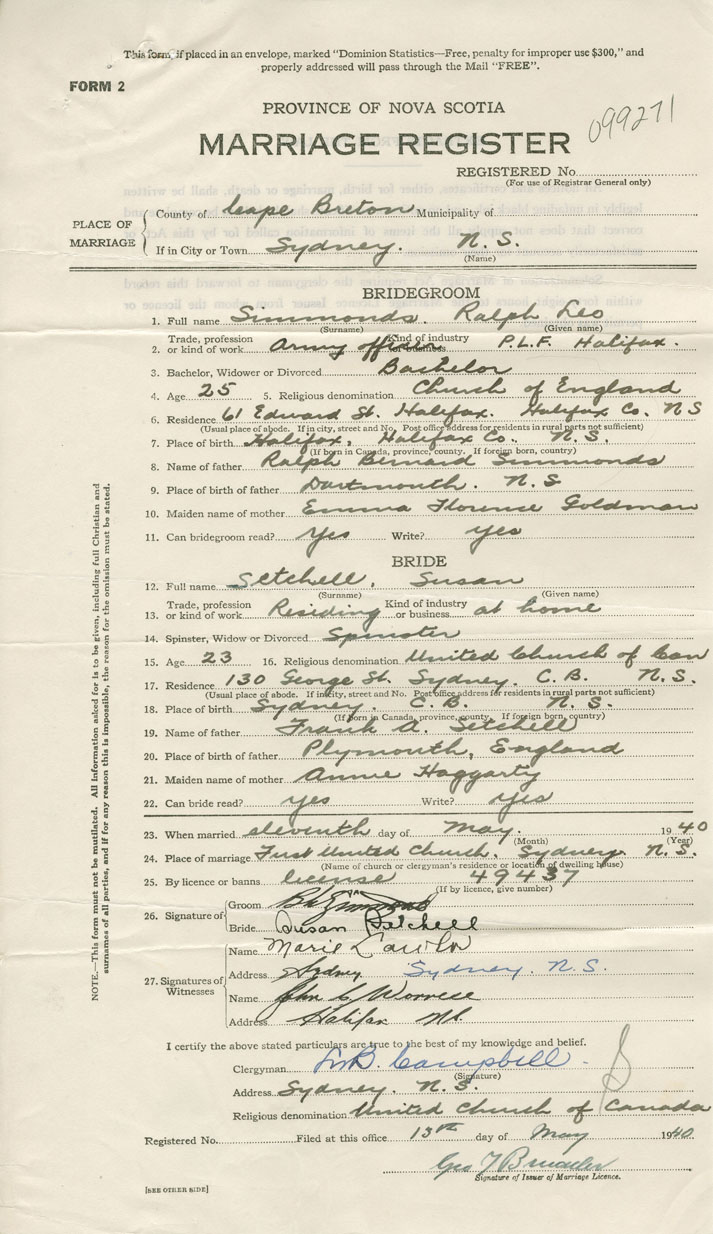 This form, if placed in an envelope, marked "Dominion Statistics—Free, penalty for improper use $300," and
properly addressed will pass through the Mail "FREE".
FORM 2
PROVINCE OF NOVA SCOTIA
099271
MARRIAGE REGISTER
REGISTERED No.
(For use of Registrar General only)
PLACE OF MARRIAGE
County of Cape Breton Municipality of
If in City or Town Sydney. N. S.
(Name)
BRIDEGROOM
1. Full name Simmonds. Ralph Leo
(Surname) (Given name)
2. Trade, profession or kind of work Army officer Kind of industry or business P.L.F. Halifax.
3. Bachelor, Widower or Divorced Bachelor
4. Age 25 5. Religious denomination Church of England
6. Residence 61 Edward St. Halifax. Halifax Co. N S
(Usual place of abode. If in city, street and No. Post office address for residents in rural parts not sufficient)
7. Place of birth Halifax, Halifax Co. N. S.
(If born in Canada, province, county. If foreign born, country)
8. Name of father Ralph Bernard Simmonds
9. Place of birth of father Dartmouth. N. S
10. Maiden name of mother Emma Florence Goldman
11. Can bridegroom read? Yes Write? yes
BRIDE
12. Full name Setchell, Susan
(Surname) (Given name)
13. Trade, profession or kind of work Residing Kind of industry or business at home
14. Spinster, Widow or Divorced Spinster
15. Age 23 16. Religious denomination United Church of Can
17. Residence 130 George St. Sydney. C. B. N. S.
(Usual place of abode. If in city, street and No. Post office address for residents in rural parts not sufficient)
18. Place of birth Sydney. C. B. N. S.
(If born in Canada, province, county. If foreign born, country)
19. Name of father Frank A. Setchell
20. Place of birth of father Plymouth, England
21. Maiden name of mother Annie Haggarty
22. Can bride read? yes Write? yes
23. When married eleventh day of May. 1940
(Month) (Year)
24. Place of marriage First United Church, Sydney N. S.
(Name of church or clergyman's residence or location of dwelling house)
25. By licence or banns license 49437
(If by licence, give number)
26. Signature of
Groom
Bride Susan Setchell
27. Signatures of Witnesses
Name Marie Lawlor
Address Sydney Sydney. N. S.
Name John C.
Address Halifax NS.
I certify the above stated particulars are true to the best of my knowledge and belief.
Clergyman B. Campbell
(Signature)
Address Sydney. N. S.
Religious denomination United Church of Canada
Registered No. Filed at this office 13th day of May 1940
Geo
Signature of Issuer of Marriage Licence.
[SEE OTHER SIDE]
NOTE.—This form must not be mutilated. All information asked for is to be given, including full Christian and
surnames of all parties, and if for any reason this is impossible, the reason for the omission must be stated.